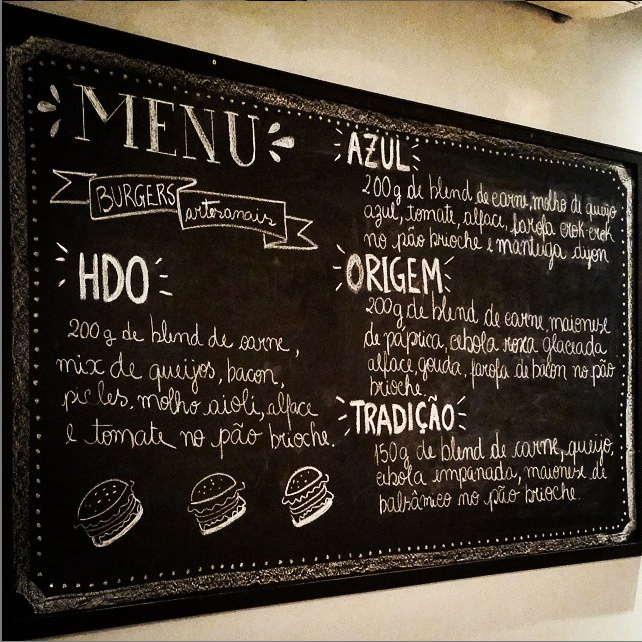 MENU
BURGERS artesanais
HDO
200g de blend de carne,
mix de queijos, bacon,
picles, molho aioli, alface
e tomate no pão brioche.
AZUL
200g de blend de carne, molho de queijo
azul, tomate, alface, farofa crok-crok
no pão brioche e manteiga dijon
ORIGEM
200g de blend de carne, maionese
de páprica, cebola roxa glaceada
alface, gouda, farofa de bacon no pão
brioche.
TRADIÇÃO
150g de blend de carne, queijo,
cebola empanada, maionese de
balsâmico no pão brioche.